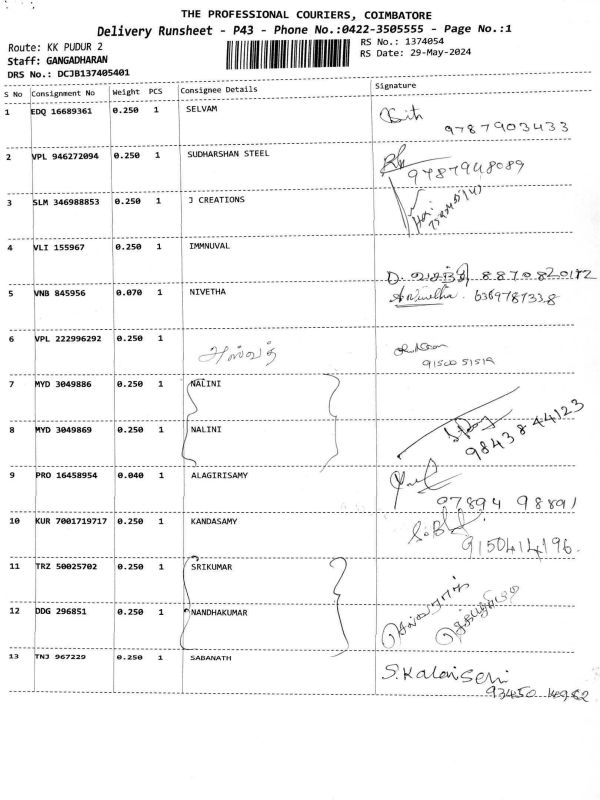 THE PROFESSIONAL COURIERS, COIMBATORE
Delivery Runsheet - P43 - Phone No.:0422-3505555 - Page No.:1
Route: KK PUDUR 2
RS No.: 1374054
Staff: GANGADHARAN
RS Date: 29-May-2024
DRS No.: DCJB137405401
S No Consignment No Weight PCS Consignee Details Signature
1 EDQ 16689361 0.250 1 SELVAM
9787903433
2 VPL 946272094 0.250 1 SUDHARSHAN STEEL
9787948089
3 SLM 346988853 0.250 1 J CREATIONS
4 VLI 155967 0.250 1 IMMNUVAL
D. வசந்தி 8870820172
5 VNB 845956 0.070 1 NIVETHA
6369787338
6 VPL 222996292 0.250 1 அஸ்வத்
9150051519
7 MYD 3049886 0.250 1 NALINI
8 MYD 3049869 0.250 1 NALINI
9843844123
9 PRO 16458954 0.040 1 ALAGIRISAMY
97894 98891
10 KUR 7001719717 0.250 1 KANDASAMY
9150414196
11 TRZ 50025702 0.250 1 SRIKUMAR
12 DDG 296851 0.250 1 NANDHAKUMAR
13 TNJ 967229 0.250 1 SABANATH
S.Kalaiselvi